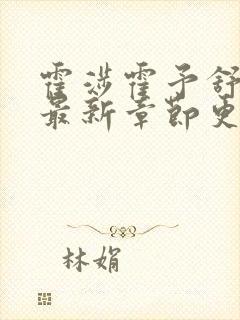 霍涉霍予舒
最新章节更
林娟